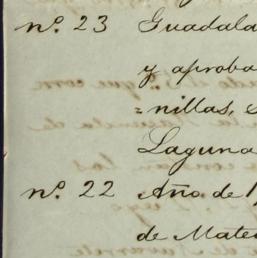 nº. 23 Guadala
y aproba
=nillas, S
Laguna
nº. 22 Año de 1
de Mate